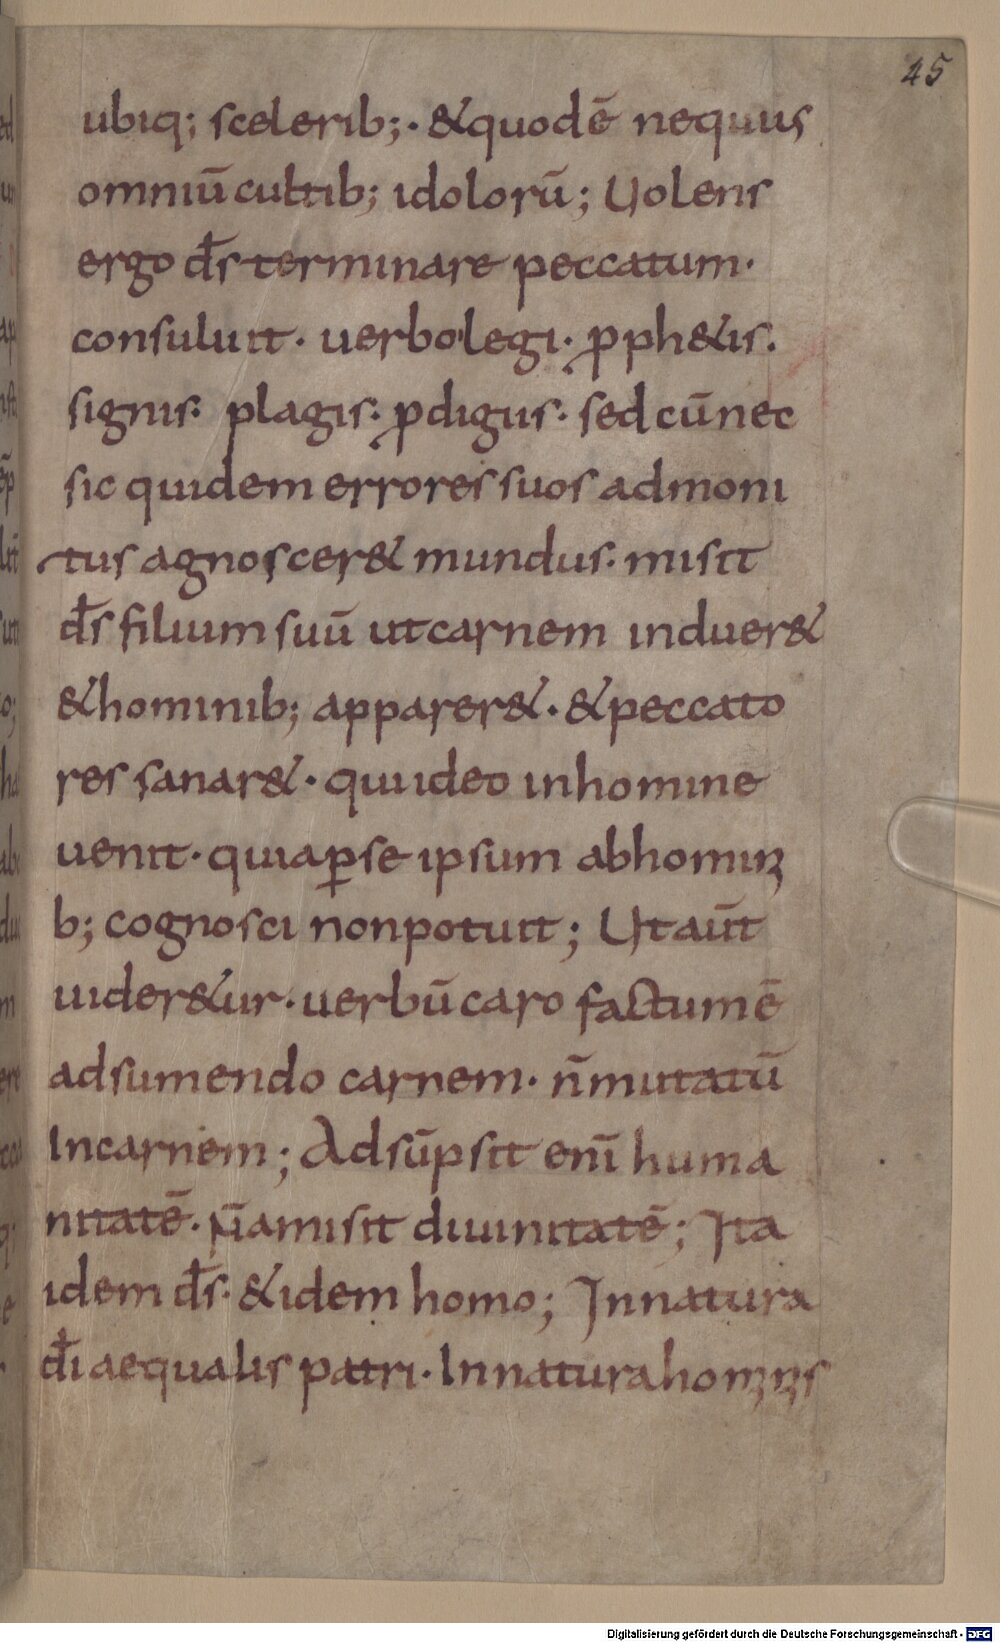 45
ubiq; scelerib;· &quodē nequius
omniū cultib; idolorū; Uolens
ergo d̄s terminare peccatum·
consuluit· uerbo legi· ꝓph&is·
signis· plagis· ꝓdigiis· sed cū nec
sic quidem errores suos admoni
tus agnoscer& mundus· misit
d̄s filium suū ut carnem induer&
&hominib; apparer&· &peccato
res sanar&· qui ideo inhomine
uenit· quia ꝑse ipsum abhomini
b; cognosci nonpotuit; Ut aūt
uider&ur· uerbū caro factum ē
adsumendo carnem· n̄ mutatū
Incarnem; Adsūpsit enī huma
nitatē· n̄ amisit diuinitatē; Ita
idem d̄s· &idem homo; In natura
d̄i aequalis patri· In natura hominis
Digitalisierung gefördert durch die Deutsche Forschungsgemeinschaft - DFG